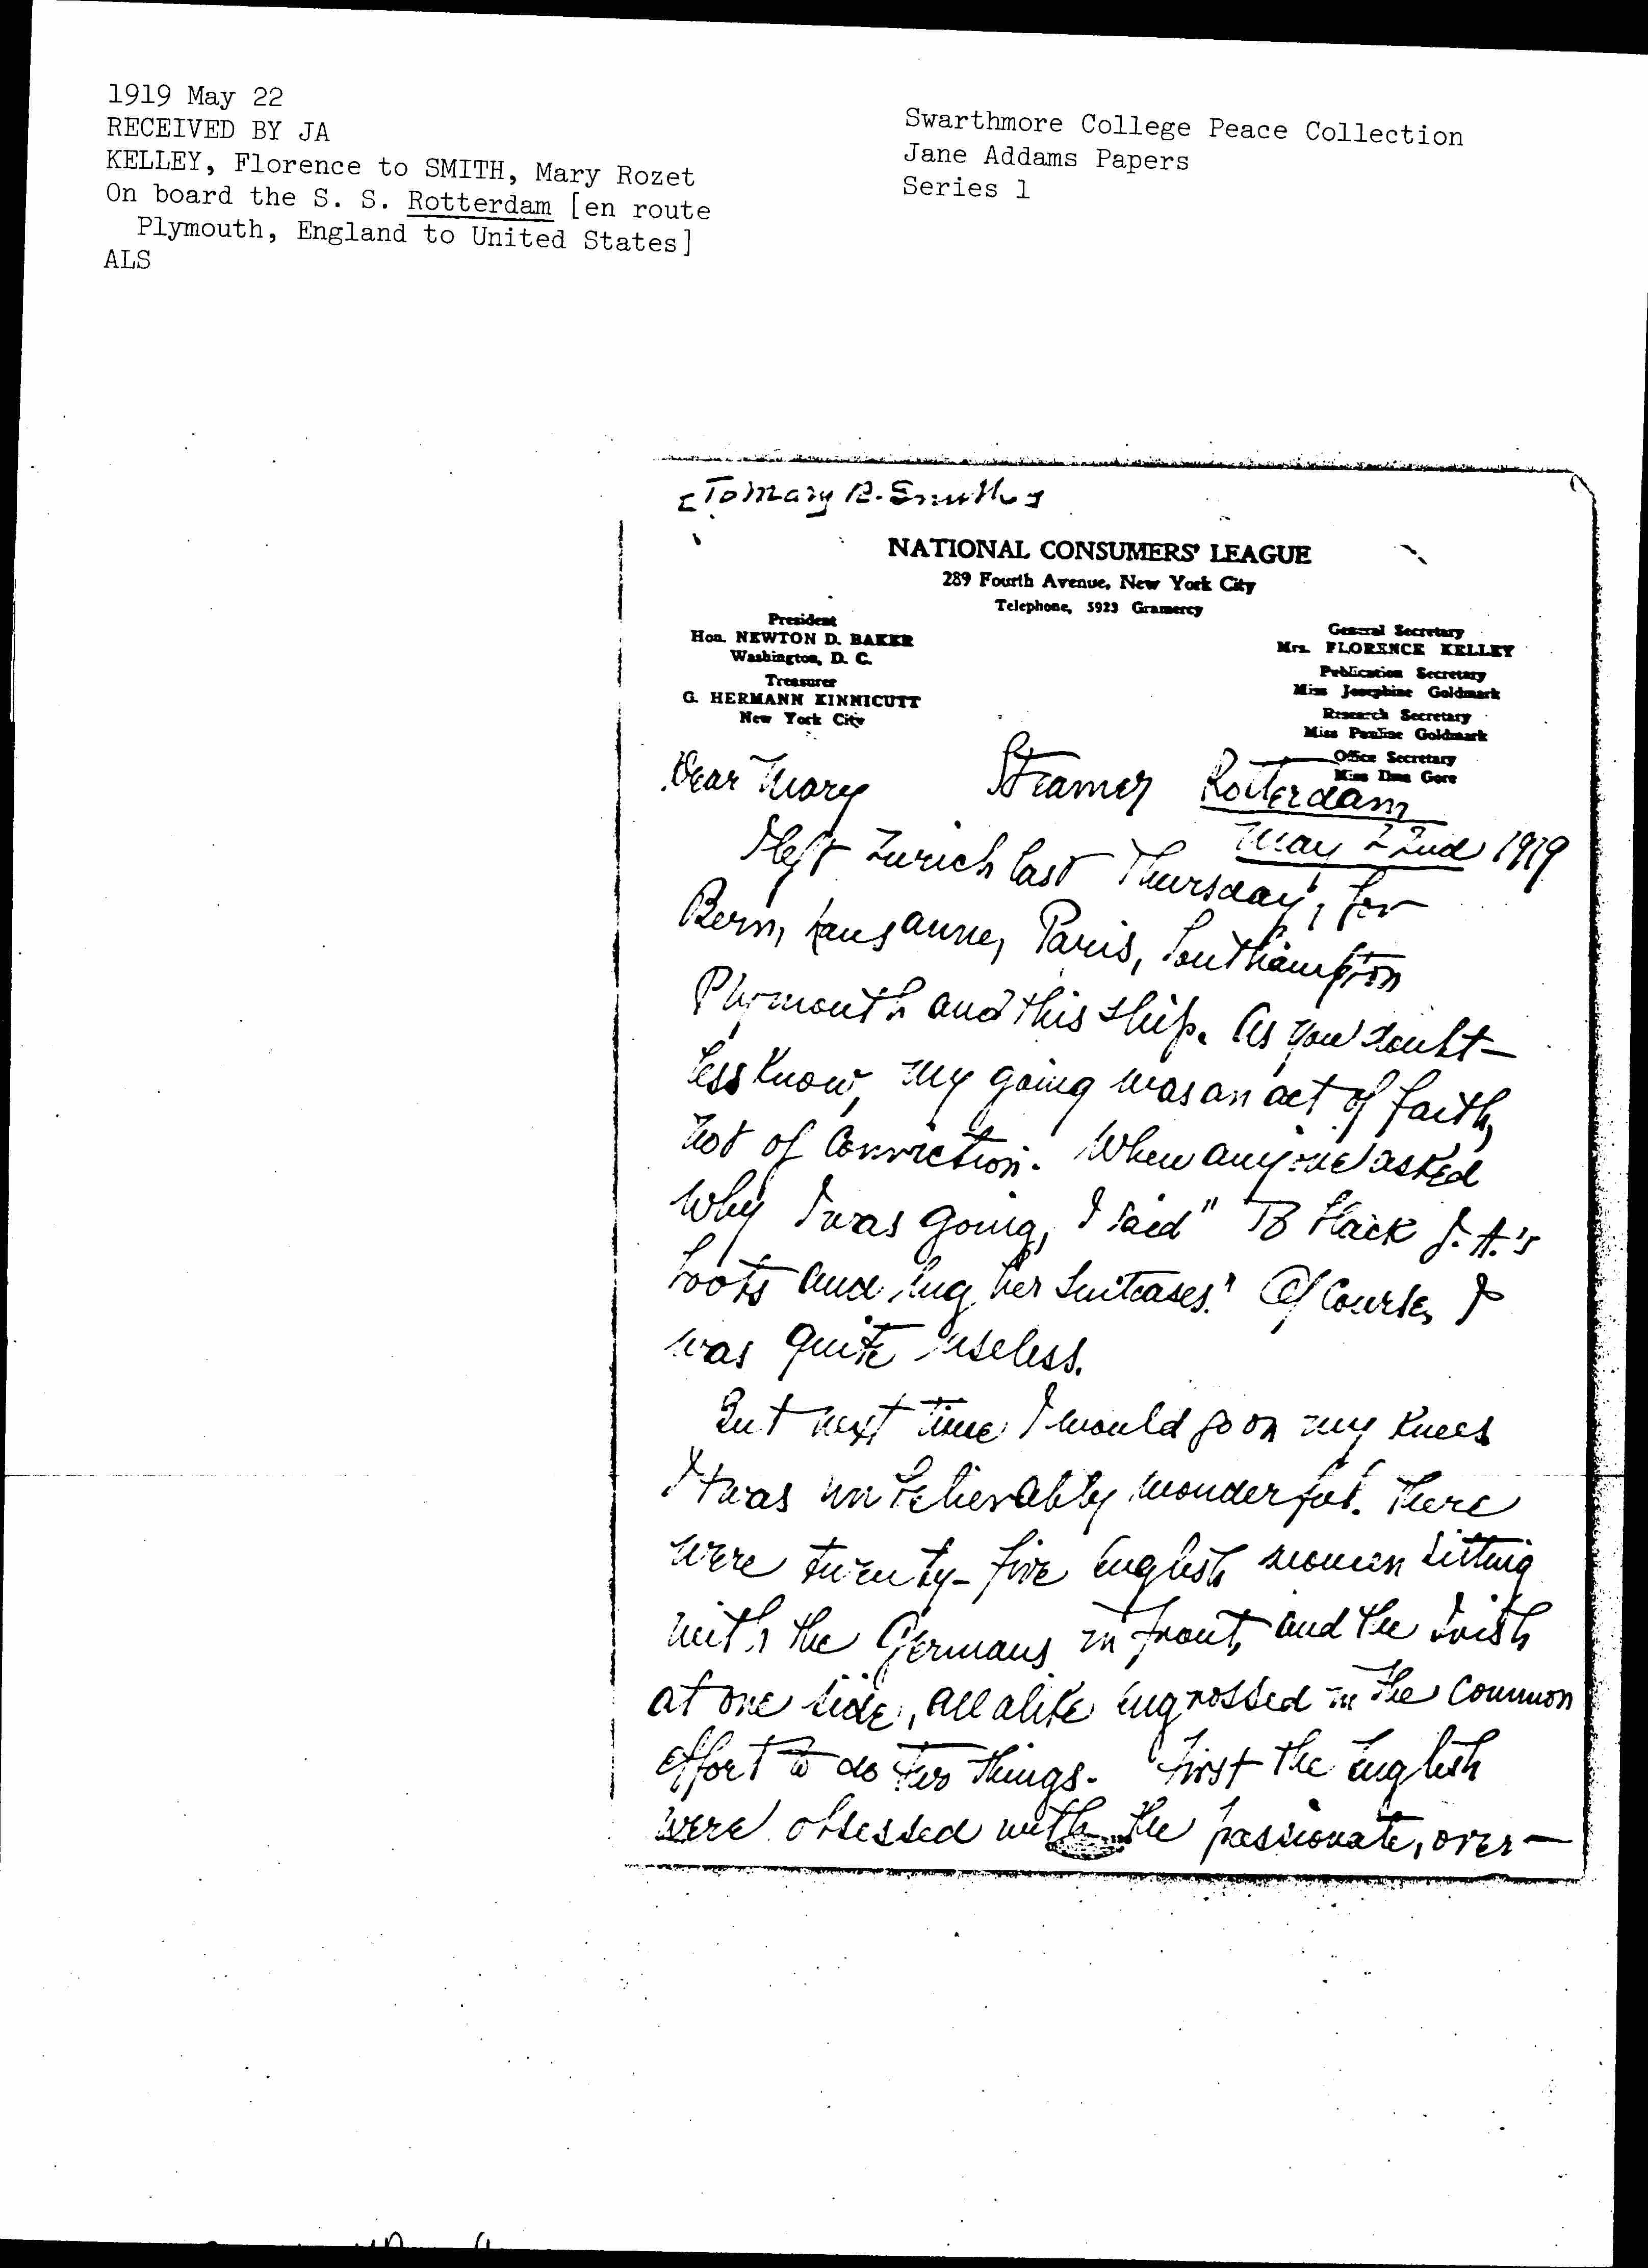 1919 May 22
RECEIVED BY JA
KELLEY, Florence to SMITH, Mary Rozet
On board the S. S. Rotterdam [en route
Plymouth, England to United States]
ALS
Swarthmore College Peace Collection
Jane Addams Papers
Series 1
[To Mary R. Smith]
NATIONAL CONSUMERS' LEAGUE
289 Fourth Avenue, New York City
Telephone, 5923 Gramercy
President
Hon. NEWTON D. BAKER
Washington, D. C.
Treasurer
G. HERMANN KINNICUTT
New York City
General Secretary
Mrs. FLORENCE KELLEY
Publication Secretary
Miss Josephine Goldmark
Research Secretary
Miss Pauline Goldmark
Office Secretary
Miss Gore
Dear Mary
Steamer Rotterdam
May 22nd 1919
I left Zurich last Thursday, for
Bern, Lausanne, Paris, Southampton
Plymouth and this ship. As you doubt-
less know, my going was an act of faith,
not of conviction. When anyone asked
why I was going, I said "To black J. A.'s
boots and lug her suitcases." Of course, I
was quite useless.
But next time I would go on my knees
It was unbelievably wonderful. There
were twenty-five English women sitting
with the Germans in front, and the Irish
at one side, all alike engrossed in the common
effort to do two things. First the English
were obsessed with the passionate, over-